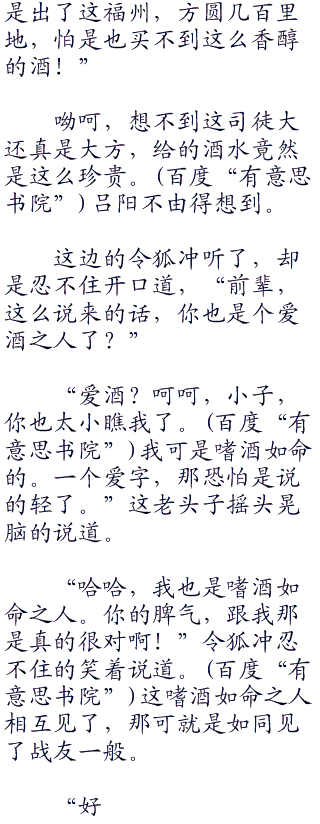 是出了这福州，方圆几百里
地，怕是也买不到这么香醇
的酒！”
呦呵，想不到这司徒大
还真是大方，给的酒水竟然
是这么珍贵。(百度“有意思
书院”)吕阳不由得想到。
这边的令狐冲听了，却
是忍不住开口道，“前辈，
这么说来的话，你也是个爱
酒之人了？”
“爱酒？呵呵，小子，
你也太小瞧我了。(百度“有
意思书院”)我可是嗜酒如命
的。一个爱字，那恐怕是说
的轻了。”这老头子摇头晃
脑的说道。
“哈哈，我也是嗜酒如
命之人。你的脾气，跟我那
是真的很对啊！”令狐冲忍
不住的笑着说道。(百度“有
意思书院”)这嗜酒如命之人
相互见了，那可就是如同见
了战友一般。
“好